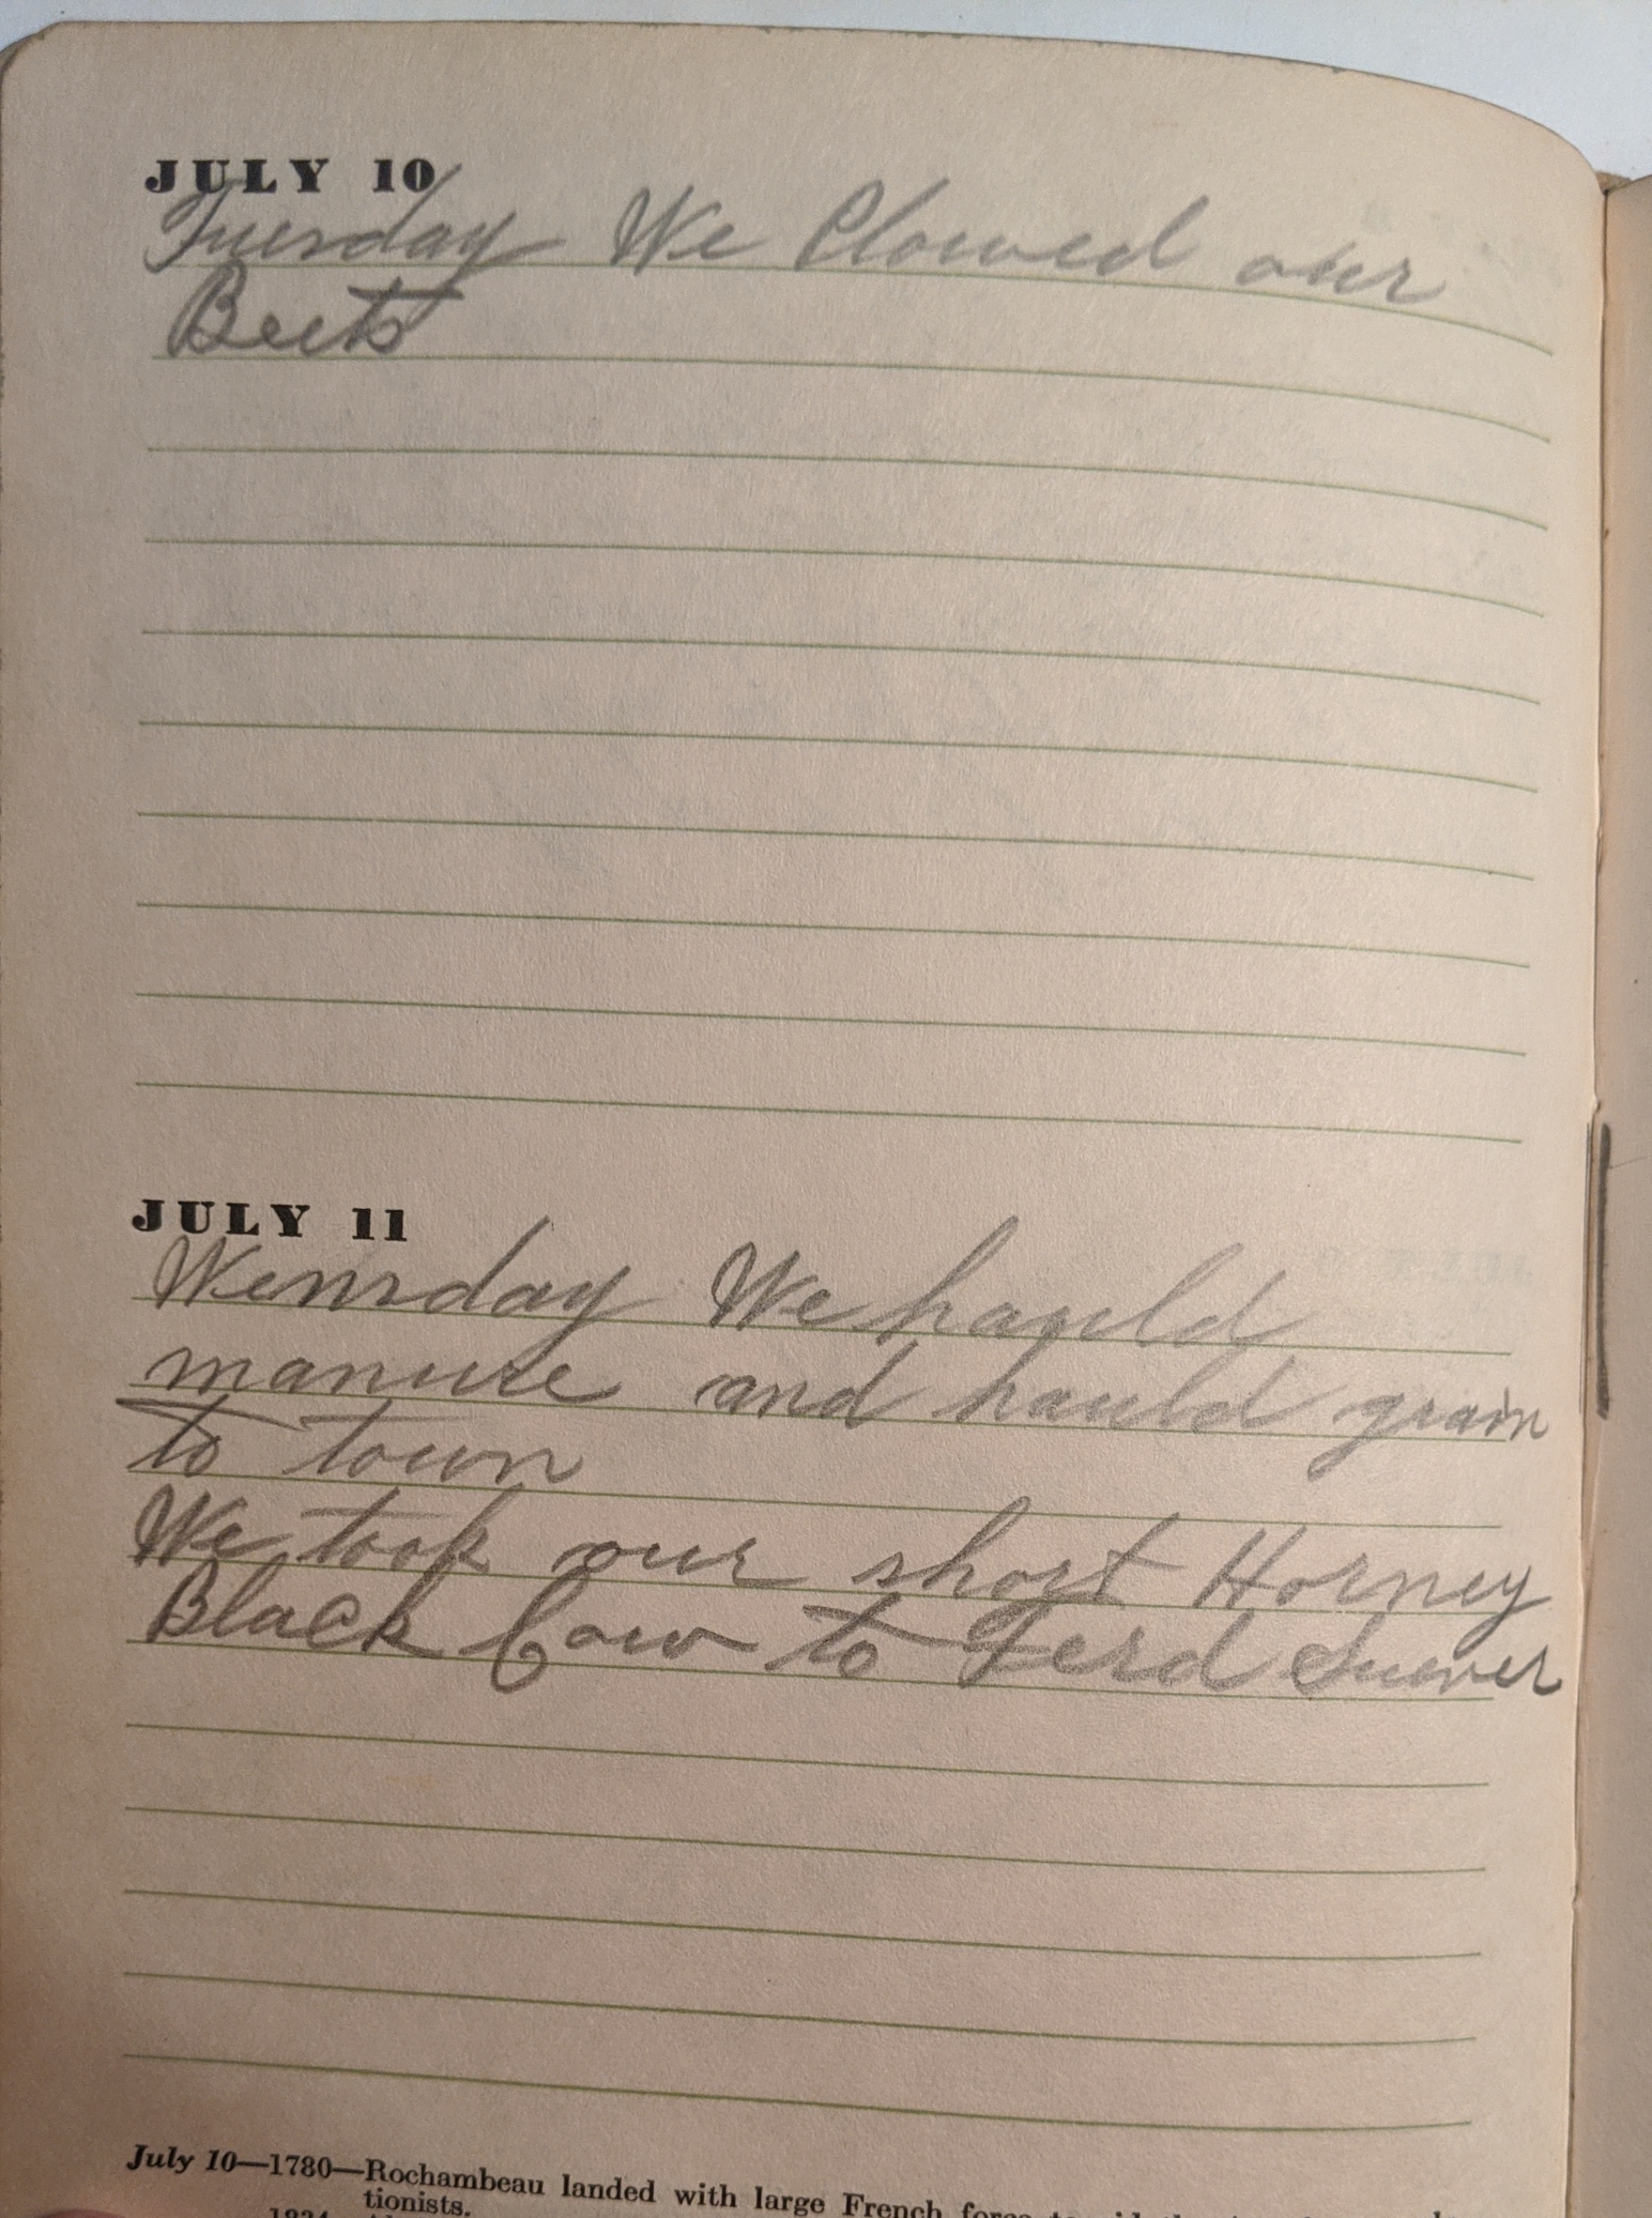 JULY 10
Tuesday We Plowed our
Beets
JULY 11
Wensday We hauld
manure and hauld grain
to town
We took our short Horney
Black Cow to Ferd
July 10—1780—Rochambeau landed with large French force to aid the
tionists.